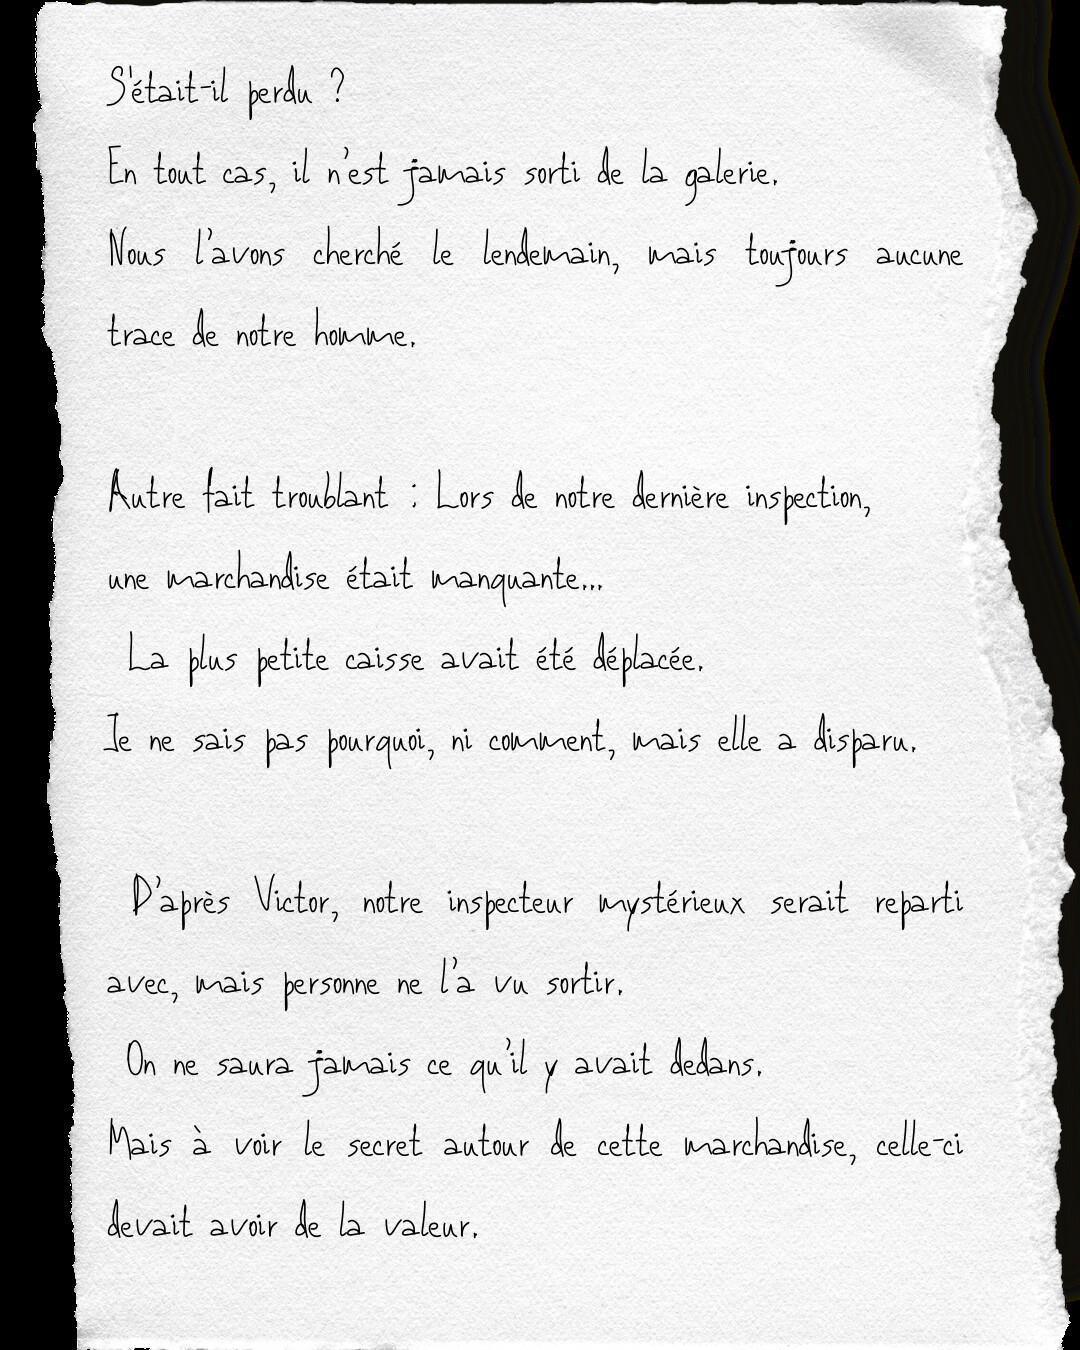 S'était-il perdu ?
En tout cas, il n'est jamais sorti de la galerie.
Nous l'avons cherché le lendemain, mais toujours aucune
trace de notre homme.
Autre fait troublant : Lors de notre dernière inspection,
une marchandise était manquante...
La plus petite caisse avait été déplacée.
Je ne sais pas pourquoi, ni comment, mais elle a disparu.
D'après Victor, notre inspecteur mystérieux serait reparti
avec, mais personne ne l'a vu sortir.
On ne saura jamais ce qu'il y avait dedans.
Mais à voir le secret autour de cette marchandise, celle-ci
devait avoir de la valeur.